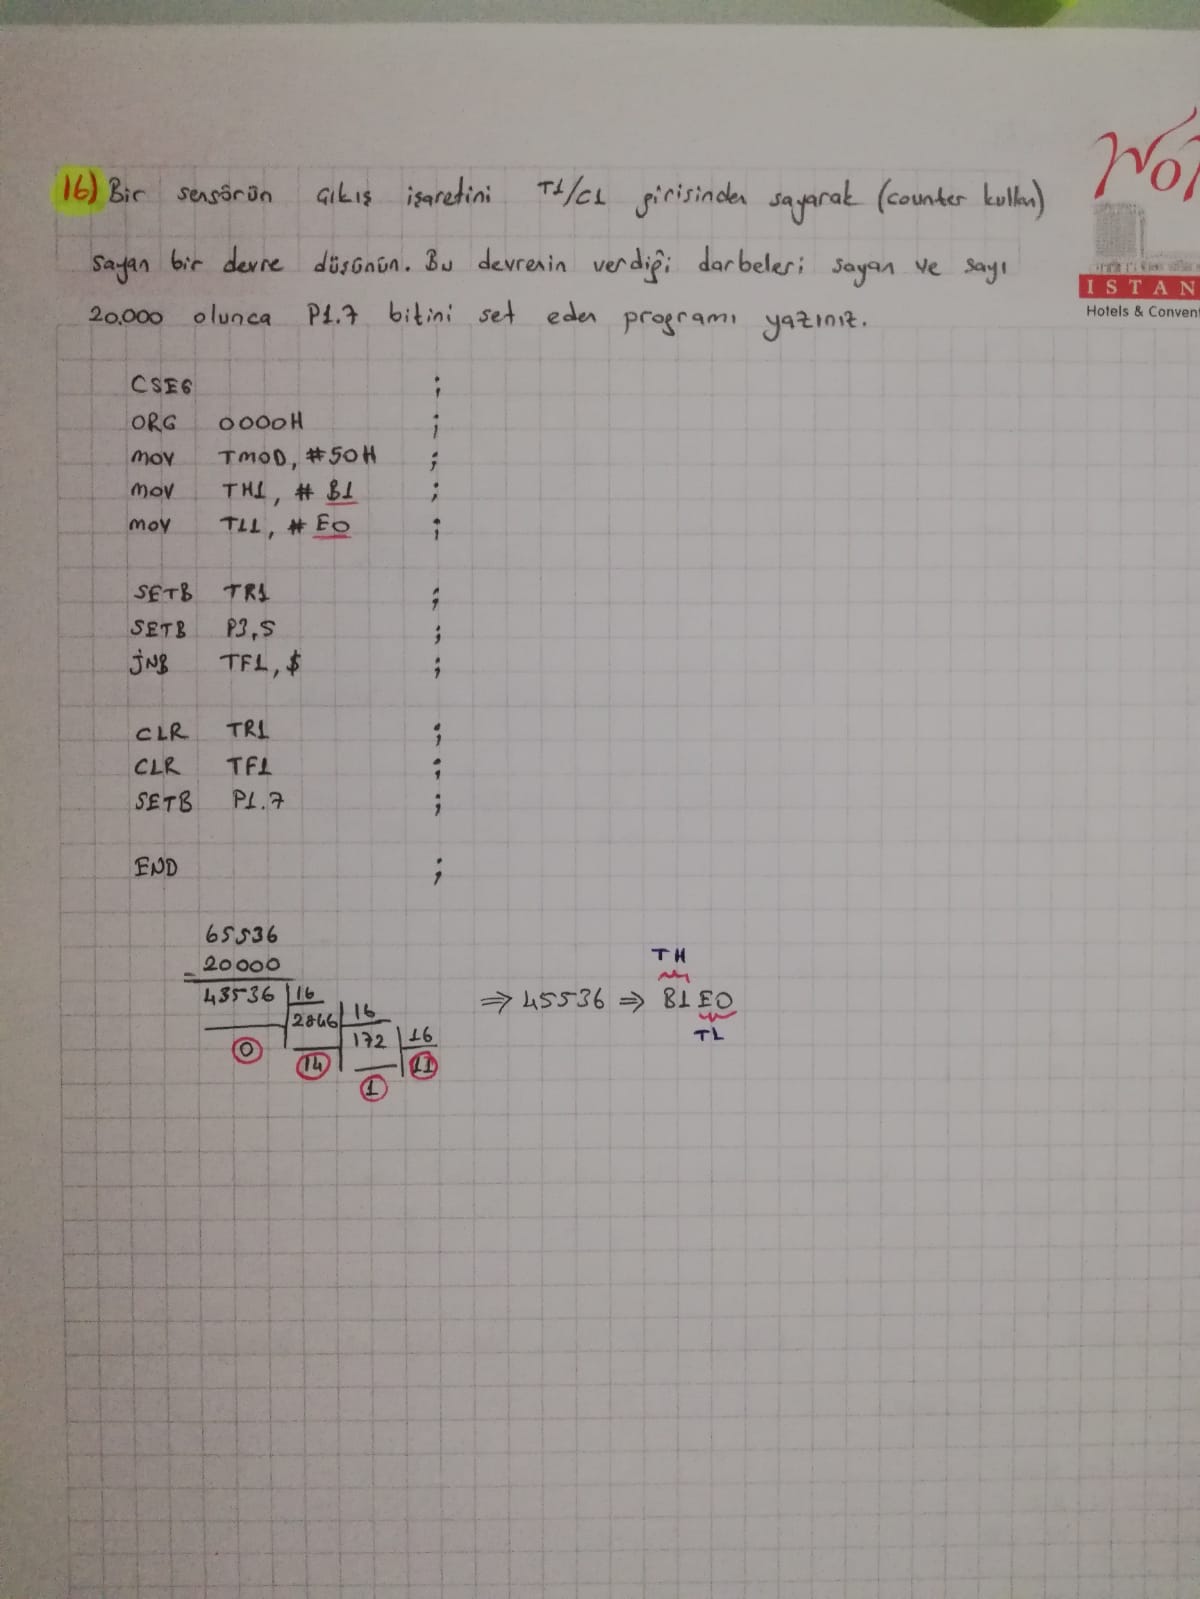 16) Bir sensörün çıkış işaretini T1/C1 girisinden sayarak (counter kullan)
sayan bir devre düşünün. Bu devrenin verdiği darbeleri sayan ve sayı
20.000 olunca P1.7 bitini set eden programı yazınız.
ISTAN
Hotels & Conven
CSEG ;
ORG 0000H ;
MOV TMOD, #50H ;
MOV TH1, # B1 ;
MOV TL1, # E0 ;
SETB TR1 ;
SETB P3,5 ;
jNB TF1, $ ;
CLR TR1 ;
CLR TF1 ;
SETB P1.7 ;
END ;
65536
- 20000
45536 | 16
2846 | 16
172 | 16
0 14 1 11
⇒ 45536 ⇒ B1E0
TH
TL